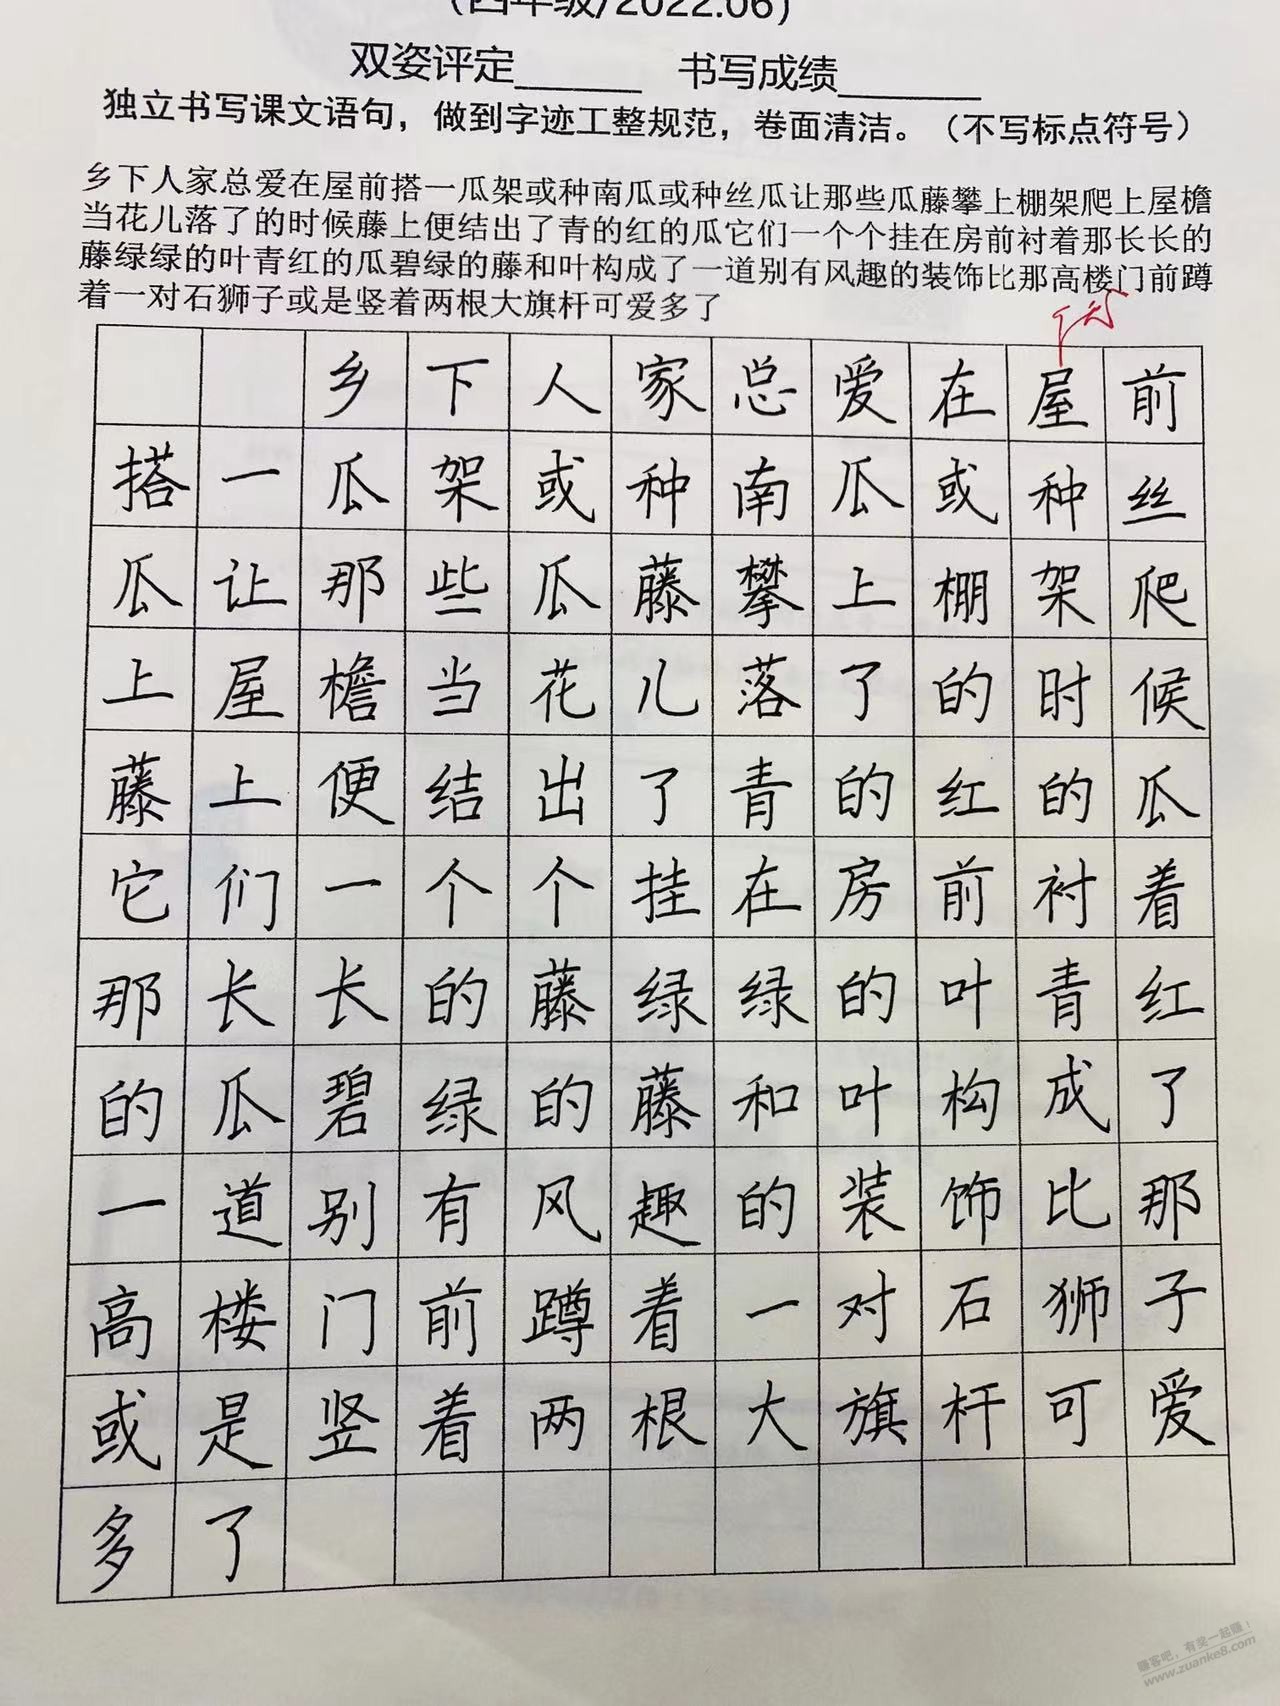 （四年级/2022.06）
双姿评定______ 书写成绩______
独立书写课文语句，做到字迹工整规范，卷面清洁。（不写标点符号）
乡下人家总爱在屋前搭一瓜架或种南瓜或种丝瓜让那些瓜藤攀上棚架爬上屋檐
当花儿落了的时候藤上便结出了青的红的瓜它们一个个挂在房前衬着那长长的
藤绿绿的叶青红的瓜碧绿的藤和叶构成了一道别有风趣的装饰比那高楼门前蹲
着一对石狮子或是竖着两根大旗杆可爱多了
乡下人家总爱在屋前
搭一瓜架或种南瓜或种丝
瓜让那些瓜藤攀上棚架爬
上屋檐当花儿落了的时候
藤上便结出了青的红的瓜
它们一个个挂在房前衬着
那长长的藤绿绿的叶青红
的瓜碧绿的藤和叶构成了
一道别有风趣的装饰比那
高楼门前蹲着一对石狮子
或是竖着两根大旗杆可爱
多了
赚客吧，有奖一起赚！
www.zuanke8.com